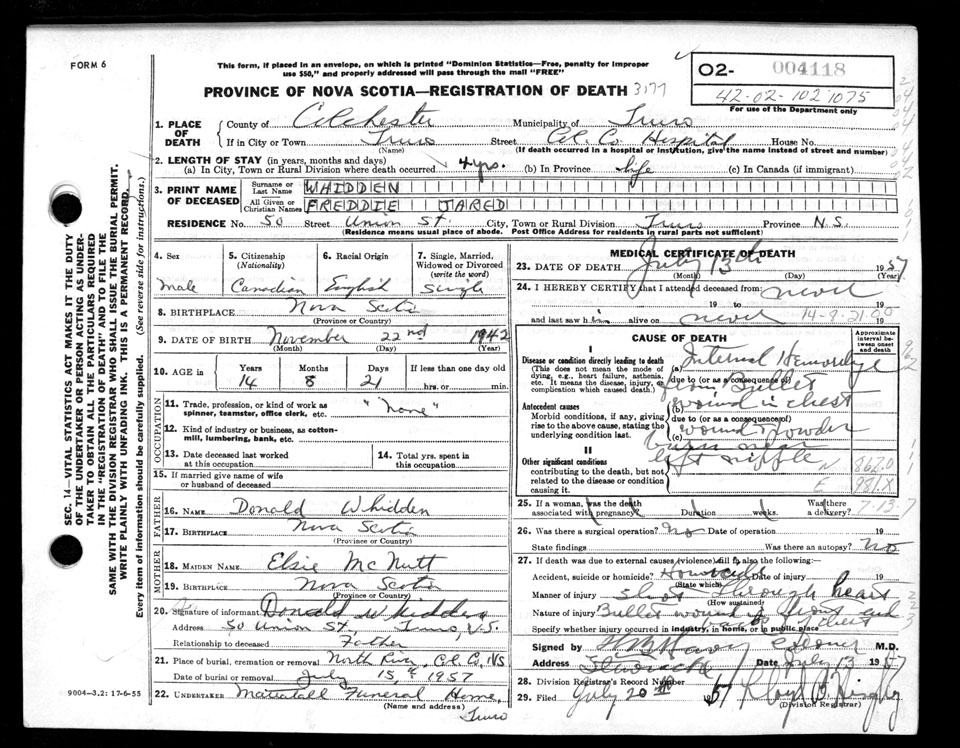 FORM 6
This form, if placed in an envelope, on which is printed "Dominion Statistics—Free, penalty for improper
use $50," and properly addressed will pass through the mail "FREE"
PROVINCE OF NOVA SCOTIA—REGISTRATION OF DEATH 3177
02- 004118
42-02-102 1075
For use of the Department only
1. PLACE OF DEATH
County of Colchester Municipality of Truro
If in City or Town Truro Street Col. Co. Hospital House No.
(Name) (If death occurred in a hospital or institution, give the name instead of street and number)
2. LENGTH OF STAY (in years, months and days)
(a) In City, Town or Rural Division where death occurred 4 yrs. (b) In Province life (c) In Canada (if immigrant)
3. PRINT NAME OF DECEASED
Surname or Last Name WHIDDEN
All Given or Christian Names FREDDIE JARED
RESIDENCE No. 50 Street Union St. City, Town or Rural Division Truro Province N.S.
(Residence means usual place of abode. Post Office Address for residents in rural parts not sufficient)
SEC. 14—VITAL STATISTICS ACT MAKES IT THE DUTY
OF THE UNDERTAKER OR PERSON ACTING AS UNDER-
TAKER TO OBTAIN ALL THE PARTICULARS REQUIRED
IN THE "REGISTRATION OF DEATH" AND TO FILE THE
SAME WITH THE DIVISION REGISTRAR WHO SHALL ISSUE THE BURIAL PERMIT.
WRITE PLAINLY WITH UNFADING INK. THIS IS A PERMANENT RECORD.
Every item of information should be carefully supplied. (See reverse side for instructions.)
4. Sex
Male
5. Citizenship
(Nationality)
Canadian
6. Racial Origin
English
7. Single, Married,
Widowed or Divorced
(write the word)
Single
8. BIRTHPLACE Nova Scotia
(Province or Country)
9. DATE OF BIRTH November 22nd 1942
(Month) (Day) (Year)
10. AGE in Years Months Days If less than one day old
14 8 21 hrs. or min.
OCCUPATION
11. Trade, profession, or kind of work as
spinner, teamster, office clerk, etc. "None"
12. Kind of industry or business, as cotton-
mill, lumbering, bank, etc.
13. Date deceased last worked
at this occupation
14. Total yrs. spent in
this occupation
15. If married give name of wife
or husband of deceased
FATHER
16. NAME Donald Whidden
17. BIRTHPLACE Nova Scotia
(Province or Country)
MOTHER
18. MAIDEN NAME Elsie McNutt
19. BIRTHPLACE Nova Scotia
(Province or Country)
20. Signature of informant Donald Whidden
Address 50 Union St., Truro, N.S.
Relationship to deceased Father
21. Place of burial, cremation or removal North River, Col. Co., NS
Date of burial or removal July 15, 1957
22. UNDERTAKER Mattatall Funeral Home,
(Name and address) Truro
9004-3.2: 17-6-55
MEDICAL CERTIFICATE OF DEATH
23. DATE OF DEATH July 13th 1957
(Month) (Day) (Year)
24. I HEREBY CERTIFY that I attended deceased from: never
19 to 19
and last saw him alive on never 19
14-8-21-00
CAUSE OF DEATH
Approximate
interval between
onset
and death
I
Disease or condition directly leading to death
(This does not mean the mode of
dying, e.g., heart failure, asthenia,
etc. It means the disease, injury, or
complication which caused death.)
(a) Internal Hemorrhage
due to (or as a consequence of)
from Bullet
Antecedent causes
Morbid conditions, if any, giving
rise to the above cause, stating the
underlying condition last.
(b) wound in chest
due to (or as a consequence of)
(c) wound powder
burn near
left nipple
II
Other significant conditions
contributing to the death, but not
related to the disease or condition
causing it.
N 862.0
E 981.X
25. If a woman, was the death
associated with pregnancy? Duration weeks. Was there
a delivery?
7-13-7
26. Was there a surgical operation? no Date of operation 19
State findings Was there an autopsy? no
27. If death was due to external causes (violence) fill in also the following:
Accident, suicide or homicide? Homicide Date of injury 19
(State which)
Manner of injury shot through heart
(How sustained)
Nature of injury Bullet wound of front and
back of chest
Specify whether injury occurred in industry, in home, or in public place
Signed by Coroner M.D.
Address Date July 13 1957
28. Division Registrar's Record Number
29. Filed July 20th 1957
(Division Registrar)